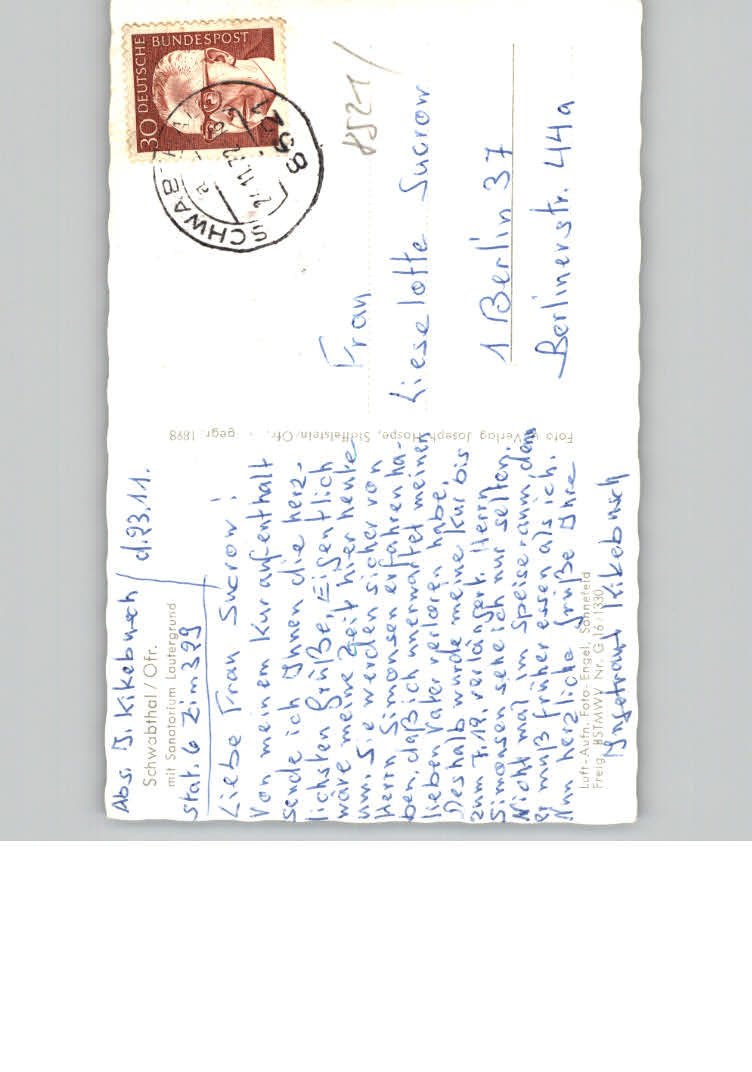 Abs. I. Kikebusch / d. 23.11.
Schwabthal / Ofr.
mit Sanatorium Lautergrund
Stat. 6 Zim 399
Liebe Frau Sucrow!
Von meinem Kuraufenthalt
sende ich Ihnen die herz-
lichsten Grüße, Eigentlich
wäre meine Zeit hier heute
um. Sie werden sicher von
Herrn Simonsen erfahren ha-
ben, daß ich unerwartet meinen
lieben Vater verloren habe.
Deshalb wurde meine Kur bis
zum 7.12. verlängert. Herrn
Simonsen sehe ich nur selten.
Nicht mal im Speiseraum, denn
er muß früher essen als ich.
Nun herzliche Grüße Ihre
Ingetraut Kikebusch
Luft-Aufn. Foto-Engel, Sonnefeld
Freig. BSTMWV Nr. G 16/1330
Foto u. Verlag Joseph Hospe, Staffelstein/Ofr. gegr. 1898
DEUTSCHE BUNDESPOST
30
8521
SCHWAB
.11.72
8521/
Frau
Lieselotte Sucrow
1 Berlin 37
Berlinerstr. 44a